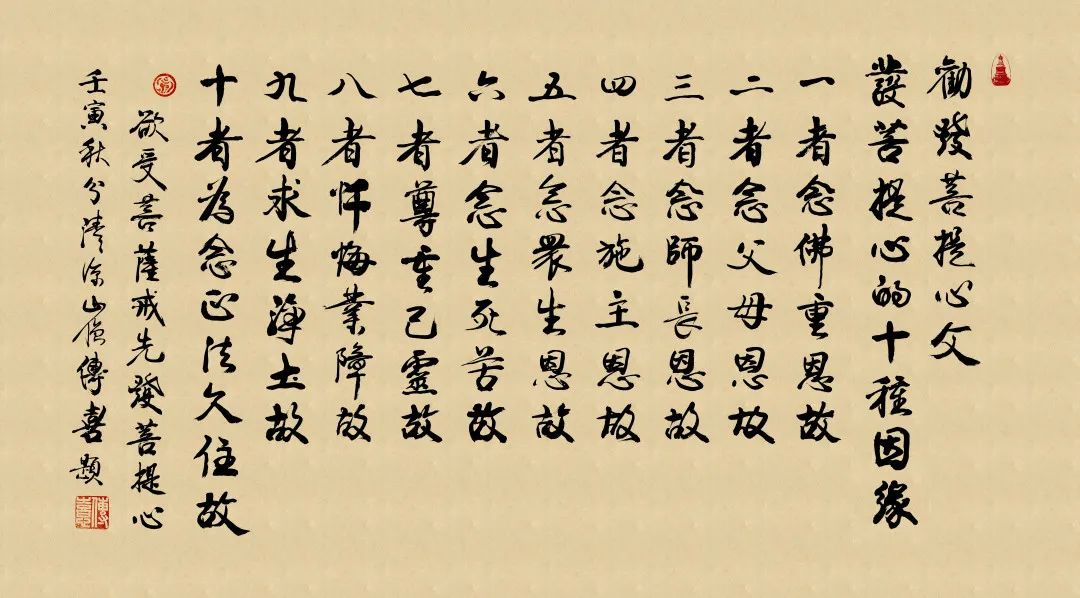 勸發菩提心文
發菩提心的十種因緣
一者念佛重恩故
二者念父母恩故
三者念師長恩故
四者念施主恩故
五者念眾生恩故
六者念生死苦故
七者尊重己靈故
八者懺悔業障故
九者求生淨土故
十者為念正法久住故
欲受菩薩戒先發菩提心
壬寅秋分清涼山傳喜題
傳喜